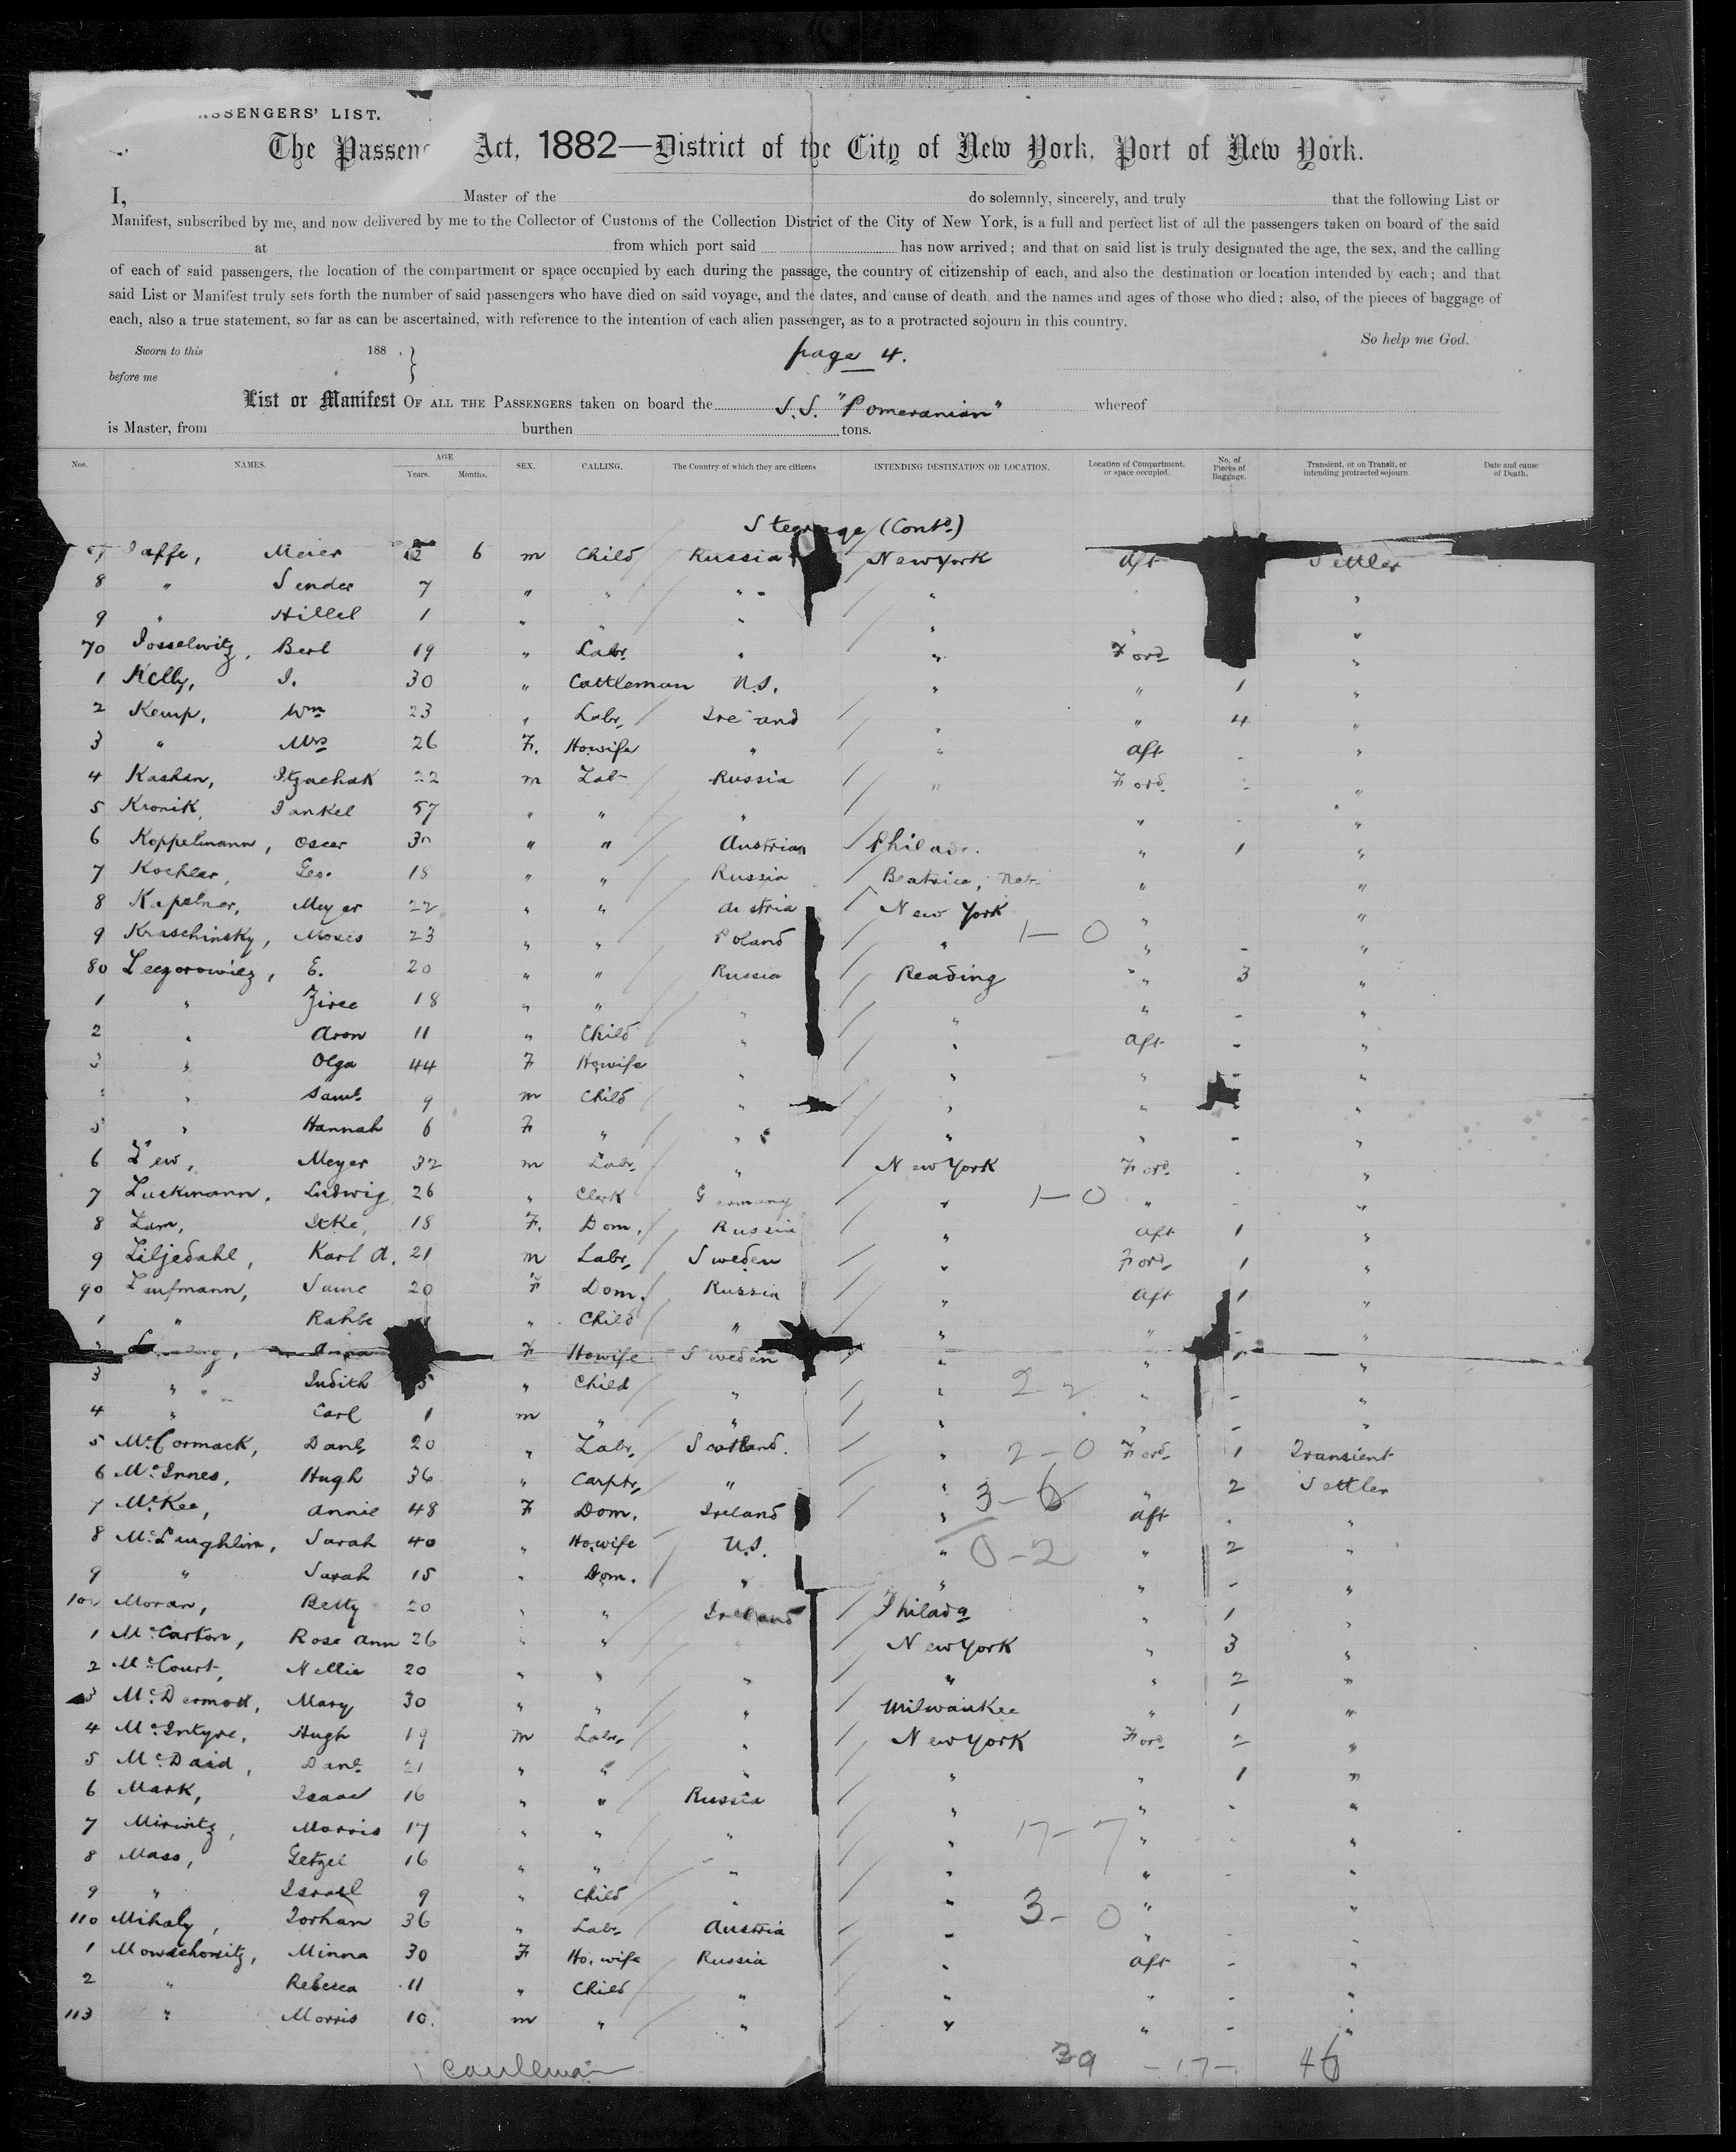 PASSENGERS' LIST.
The Passen Act, 1882—District of the City of New York, Port of New York.
I, Master of the do solemnly, sincerely, and truly that the following List or
Manifest, subscribed by me, and now delivered by me to the Collector of Customs of the Collection District of the City of New York, is a full and perfect list of all the passengers taken on board of the said
at from which port said has now arrived; and that on said list is truly designated the age, the sex, and the calling
of each of said passengers, the location of the compartment or space occupied by each during the passage, the country of citizenship of each, and also the destination or location intended by each; and that
said List or Manifest truly sets forth the number of said passengers who have died on said voyage, and the dates, and cause of death, and the names and ages of those who died; also, of the pieces of baggage of
each, also a true statement, so far as can be ascertained, with reference to the intention of each alien passenger, as to a protracted sojourn in this country.
So help me God.
Sworn to this 188 ,
before me
page 4.
List or Manifest OF ALL THE PASSENGERS taken on board the S.S. "Pomeranian" whereof
is Master, from burthen tons.
Nos. NAMES. AGE Years. Months. SEX. CALLING. The Country of which they are citizens INTENDING DESTINATION OR LOCATION. Location of Compartment, or space occupied. No. of Pieces of Baggage. Transient, or on Transit, or intending protracted sojourn. Date and cause of Death.
Steerage (Contd.)
Jaffe, Meier 6 m Child Russia New York Aft Settler
8 " Sender 7 " " " " "
9 " Hillel 1 " " " " " "
70 Josselwitz, Berl 19 " Labr. " " Ford "
1 Kelly, J. 30 " Cattleman U.S. " " 1 "
2 Kemp, Wm 23 " Labr. Ireland " " 4 "
3 " Mrs 26 F. Howife " " aft - "
4 Kashan, Itzachak 22 m Labr Russia " Ford - "
5 Kronik, Jankel 57 " " " " - "
6 Koppelmann, Oscar " " Austrian Philad. " 1 "
7 Kochler, Geo. 18 " " Russia Beatrice, Neb. " "
8 Kapelner, Meyer 22 " " Austria New York " "
9 Kraschinsky, Moses 23 " " Poland " 1-0 " - "
80 Leezorowicz, E. 20 " " Russia Reading " 3 "
1 " Ziree 18 " " " " " - "
2 " Aron 11 " Child " " aft - "
3 " Olga 44 F Howife " " " - "
" Saml. 9 m Child " " " "
5 " Hannah 6 F " " " " - "
6 Lew, Meyer 32 m Labr. " New York Ford - "
7 Luckmann, Ludwig 26 " Clerk Germany " 1-0 " - "
8 Lam, Itke, 18 F. Dom. Russia " aft 1 "
9 Liljedahl, Karl A. 21 m Labr. Sweden " Ford 1 "
90 Laufmann, 20 F Dom. Russia " aft 1 "
1 " Rahle " Child " " " - "
Anna F Howife Sweden " " - "
3 " Judith 5 " Child " " 2-2 " - "
4 " Carl 1 m " " " " - "
5 McCormack, Danl. 20 " Labr. Scotland. " 2-0 Ford 1 Transient
6 McInnes, Hugh 36 " Carptr. " " 3-6 " 2 Settler
7 McKee, Annie 48 F Dom. Ireland " aft "
8 McLaughlin, Sarah 40 " Howife U.S. " 0-2 " 2 "
9 " Sarah 15 " Dom. " " " - "
100 Moran, Betty 20 " " Ireland Philada " 1 "
1 McCarton, Rose Ann 26 " " New York " 3 "
2 McCourt, Nellie 20 " " " " " 2 "
3 McDermott, Mary 30 " " " Milwaukee " 1 "
4 McIntyre, Hugh 19 m Labr. " New York Ford 2 "
5 McDaid, Danl. 21 " " " " " 1 "
6 Mark, Isaac 16 " " Russia " " - "
7 Mirwitz, Morris 17 " " " " 17-7 " - "
8 Mass, Getzel 16 " " " " " - "
9 " Israel 9 " Child " " 3-0 " "
110 Mihaly, 36 " Labr. Austria " " - "
1 Mowschowitz, Minna 30 F Ho. wife Russia " aft - "
2 " Rebecca 11 " Child " " " - "
113 " Morris 10. m " " " " - "
39 -17- 46